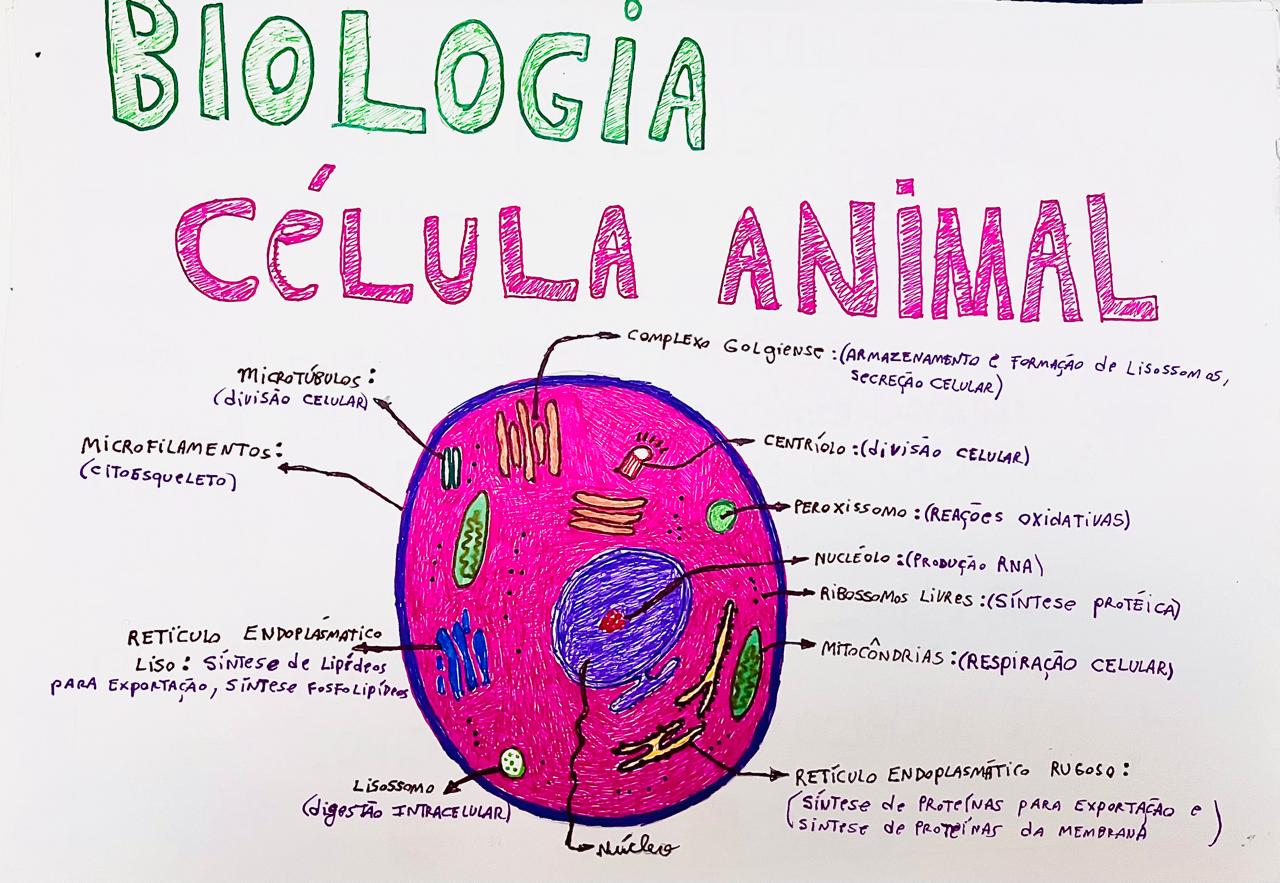 BIOLOGIA
CÉLULA ANIMAL
COMPLEXO GOLGIENSE: (ARMAZENAMENTO e FORMAÇÃO de LISOSSOMOS,
SECREÇÃO CELULAR)
MICROTÚBULOS:
(divisão CELULAR)
MICROFILAMENTOS:
(CITOESQUELETO)
CENTRÍOLO: (divisão CELULAR)
PEROXISSOMO: (REAÇÕES OXIDATIVAS)
NUCLÉOLO: (PRODUÇÃO RNA)
RIBOSSOMOS LIVRES: (SÍNTESE PROTÉICA)
MITOCÔNDRIAS: (RESPIRAÇÃO CELULAR)
RETÍCULO ENDOPLASMÁTICO
LISO: SÍNTESE de LIPÍDEOS
PARA EXPORTAÇÃO, SÍNTESE FOSFOLIPÍDEOS
LISOSSOMO
(digESTÃO INTRACELULAR)
Núcleo
RETÍCULO ENDOPLASMÁTICO RUGOSO:
(SÍNTESE de PROTEÍNAS PARA EXPORTAÇÃO e
SÍNTESE de PROTEÍNAS DA MEMBRANA)